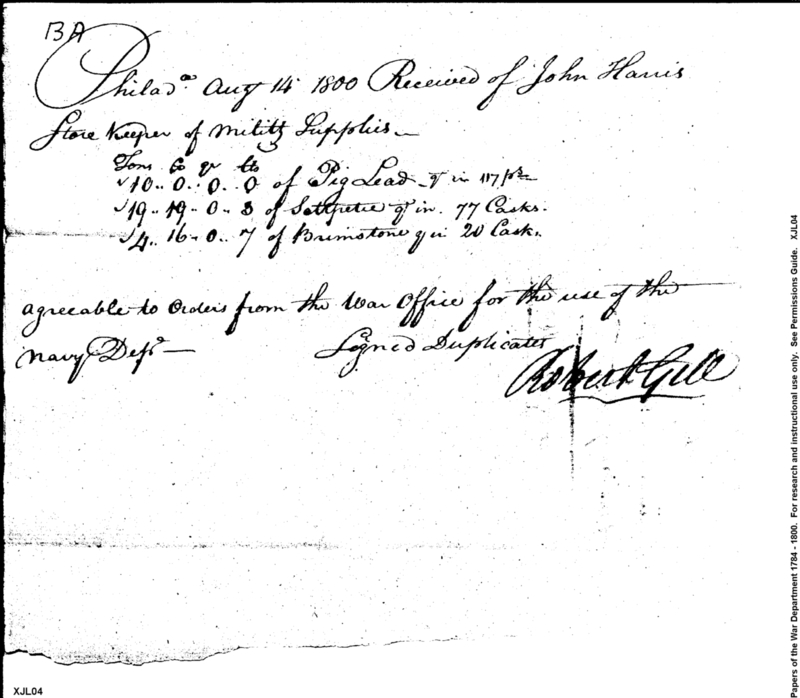 BA
Philada. Aug 14 1800 Received of John Harris
Store Keeper of Mility Supplies
Tons C qr lb
10.. 0.. 0.. 0 of Pig Lead in 117 ps
19.. 19.. 0.. 3 of Saltpetre in 77 Casks.
4.. 16.. 0.. 7 of Brimstone in 20 Cask.
agreeable to Orders from the War Office for the use of the
Navy Dept
Signed Duplicates
Robert Gill
XJL04
Papers of the War Department 1784 - 1800. For research and instructional use only. See Permissions Guide. XJL04